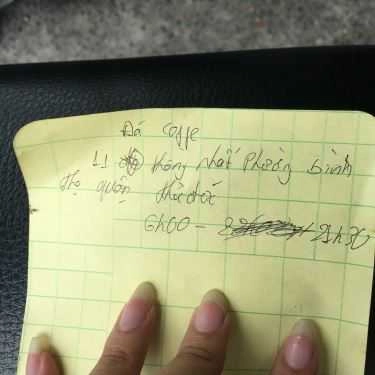 Đá Coffe
11 Thống nhất Phường bình
thọ quận thủ đức
6h00 - 21h30